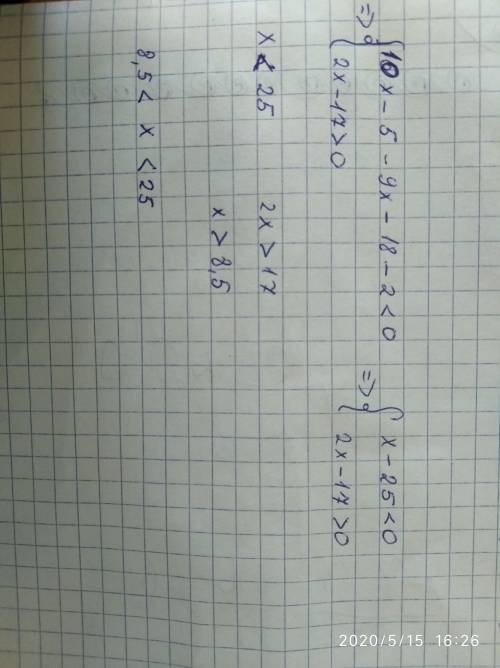 => { 10x - 5 - 9x - 18 - 2 < 0 => { x - 25 < 0
2x - 17 > 0 2x - 17 > 0
x < 25 2x > 17
x > 8,5
8,5 < x < 25
2020/5/15 16:26